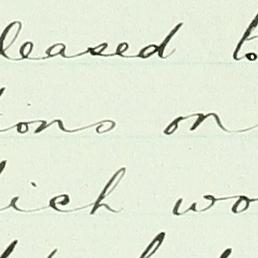 leased
ions on
ich wo